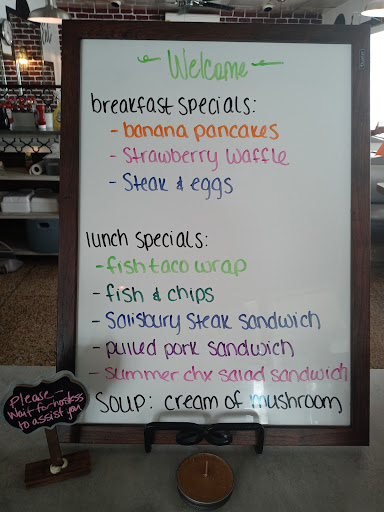 Welcome
breakfast specials:
- banana pancakes
- Strawberry Waffle
- Steak & eggs
lunch specials:
- fish taco wrap
- fish & chips
- Salisbury Steak sandwich
- pulled pork sandwich
- summer chx salad sandwich
SOUP: cream of mushroom
Please -
Wait for hostess
to assist you